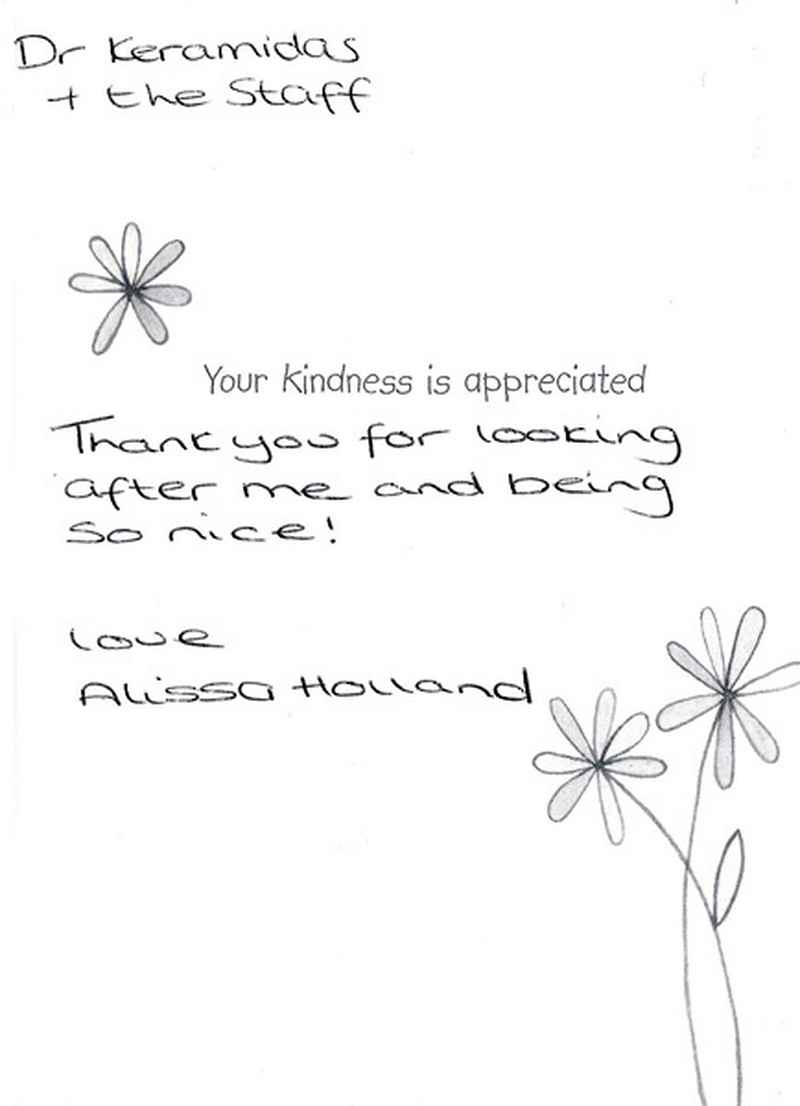 Dr Keramidas
+ the Staff
Your kindness is appreciated
Thank you for looking
after me and being
so nice!
love
Alissa Holland